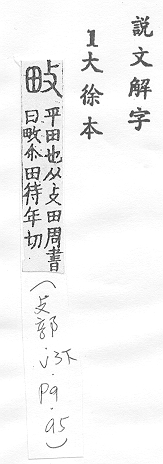 說文解字
1大徐本
畋
平田也从攴田周書
曰畋尒田待年切
(攴部.j3下.p9.a5)